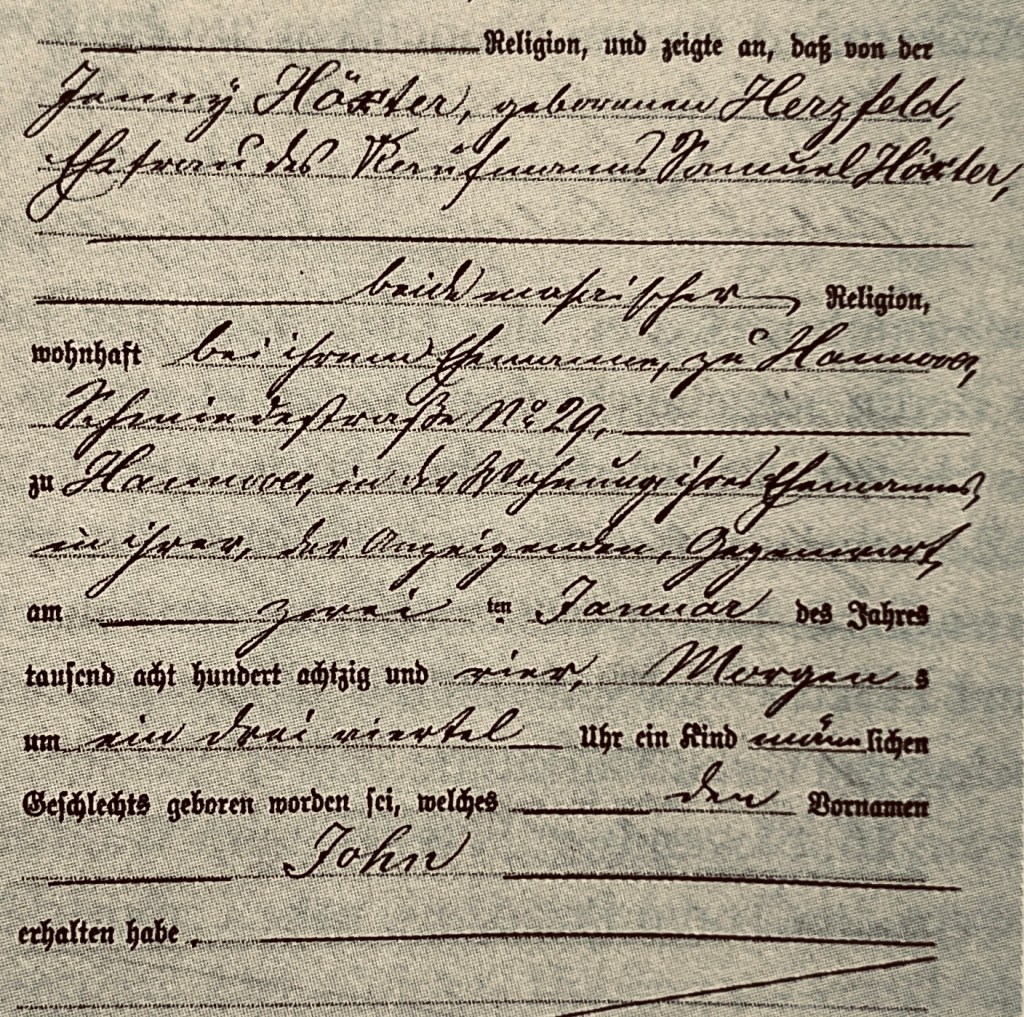 Religion, und zeigte an, daß von der
Jenny Höxter, geborenen Herzfeld,
Ehefrau des Kaufmanns Samuel Höxter,
beide mosaischer Religion,
wohnhaft bei ihrem Ehemanne, zu Hannover,
Schmiedestraße No 29,
zu Hannover, in der Wohnung ihres Ehemannes,
in ihrer, der Anzeigenden, Gegenwart,
am zwei ten Januar des Jahres
tausend acht hundert achtzig und vier, Morgens
um ein drei viertel Uhr ein Kind männlichen
Geschlechts geboren worden sei, welches den Vornamen
John
erhalten habe.